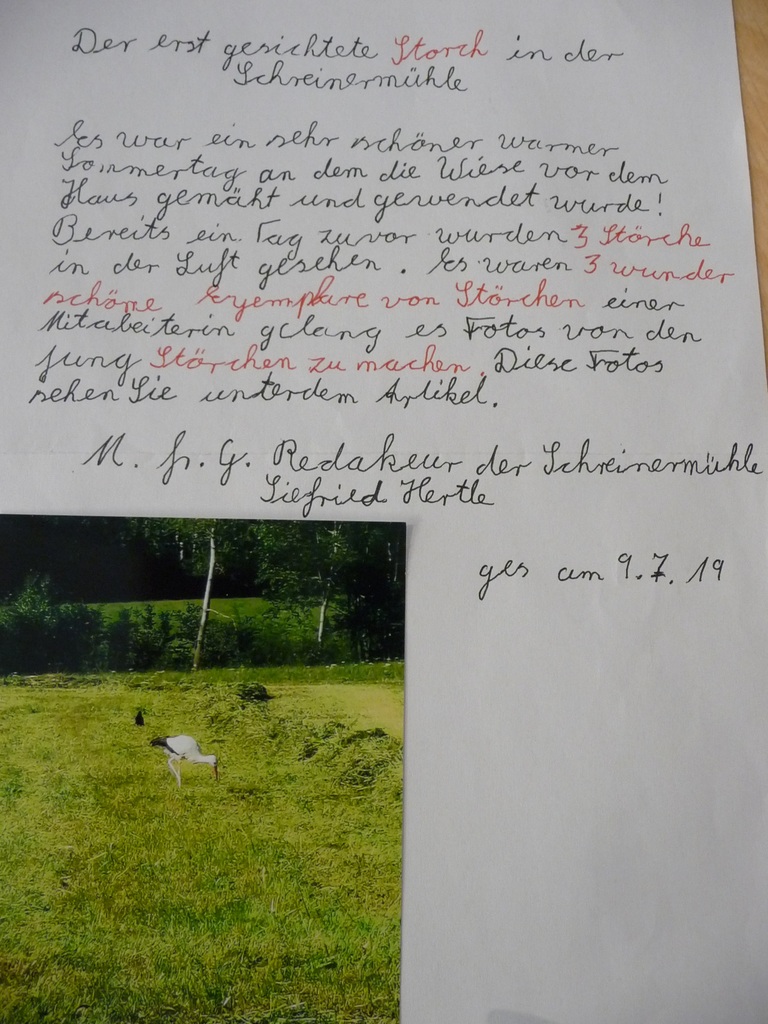 Der erst gesichtete Storch in der
Schreinermühle
Es war ein sehr schöner warmer
Sommertag an dem die Wiese vor dem
Haus gemäht und gewendet wurde!
Bereits ein Tag zuvor wurden 3 Störche
in der Luft gesehen. Es waren 3 wunder
schöne Exemplare von Störchen einer
Mitabeiterin gelang es Fotos von den
jung Störchen zu machen. Diese Fotos
sehen Sie unterdem Artikel.
M. fr. G. Redakeur der Schreinermühle
Siefried Hertle
ges am 9.7.19